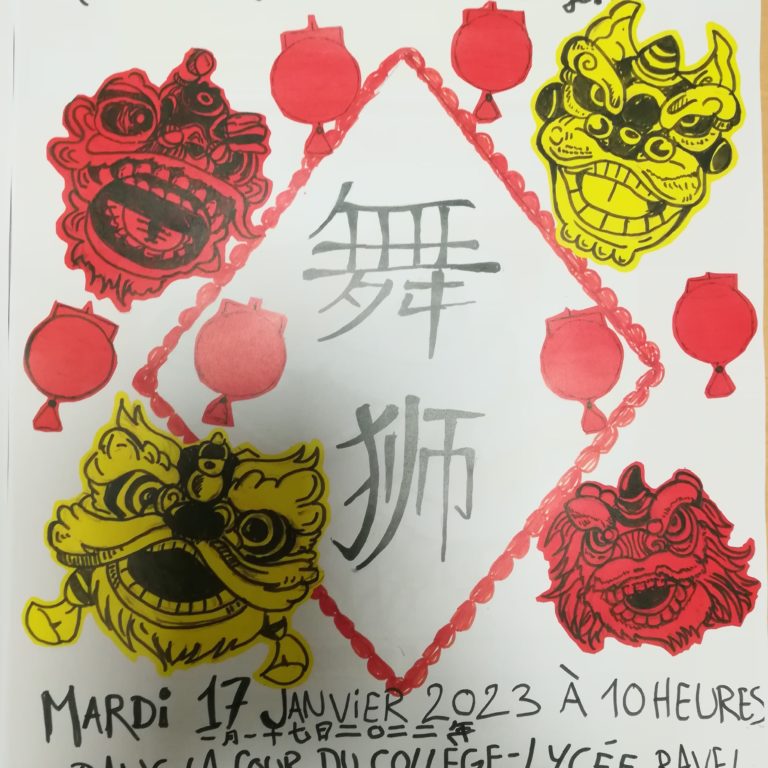 舞
狮
MARDi 17 JANViER 2023 À 10 HEURES
二月一十七日二〇二二年
DANS LA COUR DU COLLEGE-LYCÉE RAVEL